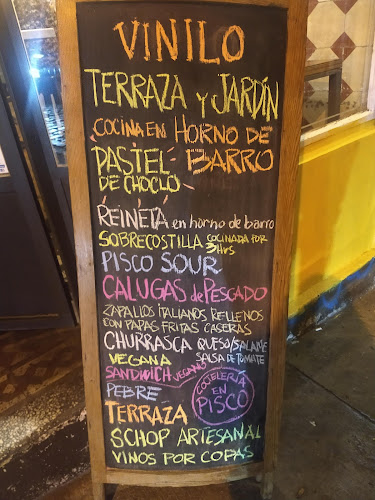 VINILO
TERRAZA Y JARDÍN
COCINA EN HORNO DE BARRO
PASTEL DE CHOCLO
REINETA en horno de barro
SOBRECOSTILLA COCINADA POR 3 Hrs
PISCO SOUR
CALUGAS de PESCADO
ZAPALLOS ITALIANOS RELLENOS
CON PAPAS FRITAS CASERAS
CHURRASCA QUESO/SALAME
VEGANA SALSA DE TOMATE
SANDWICH VEGANO
PEBRE
COCTELERÍA EN PISCO
TERRAZA
SCHOP ARTESANAL
VINOS POR COPAS